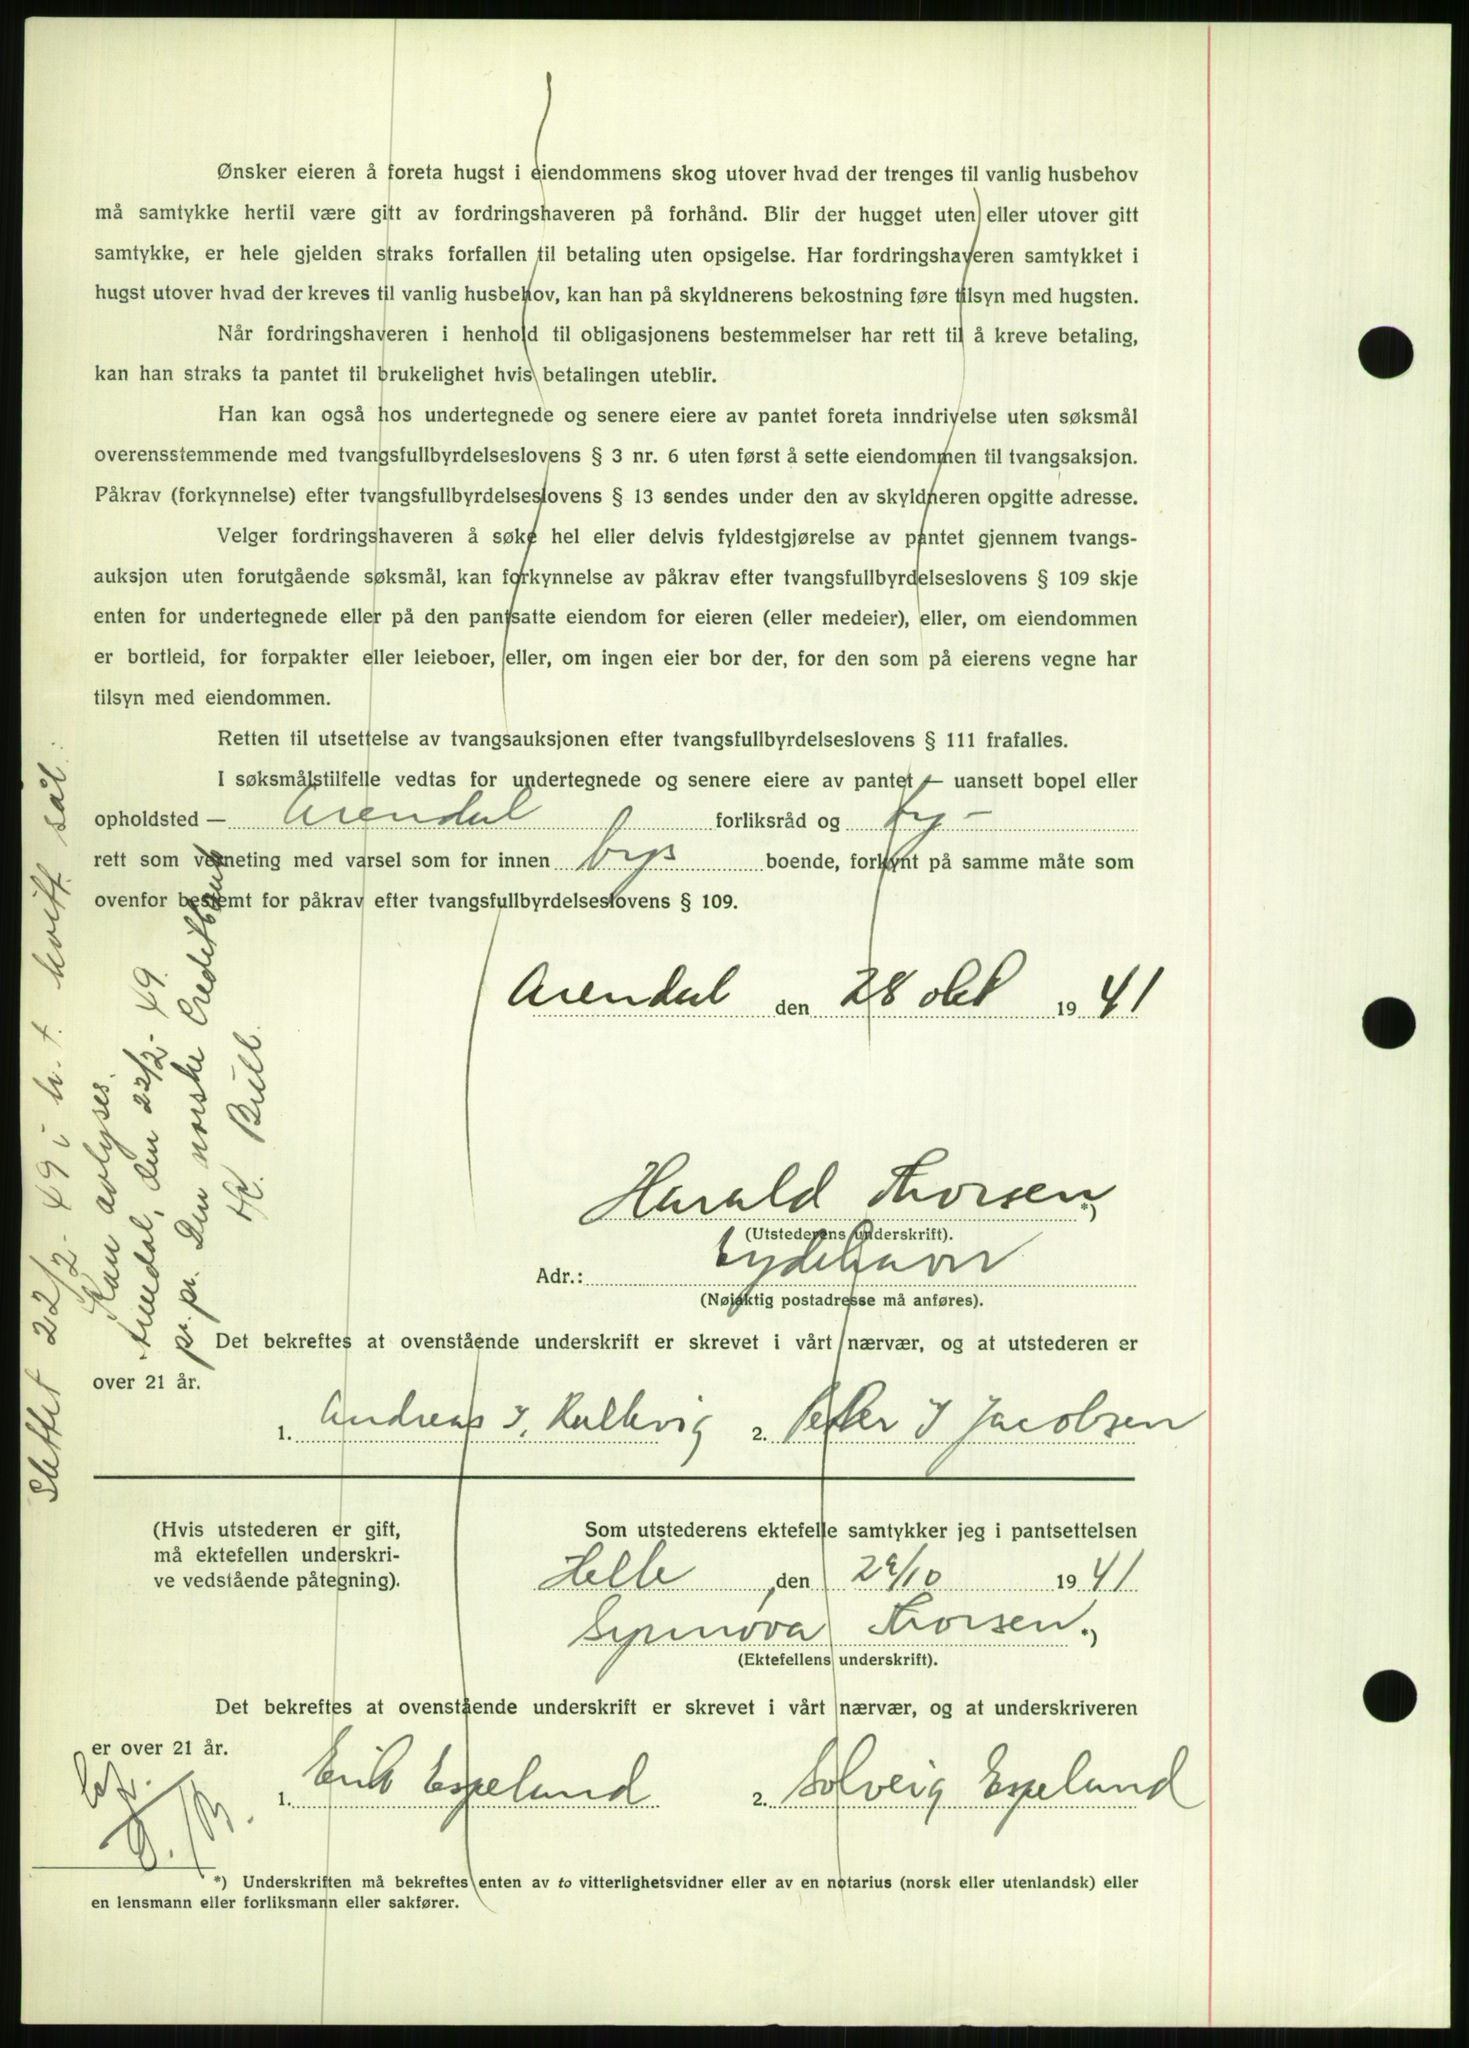 Ønsker eieren å foreta hugst i eiendommens skog utover hvad der trenges til vanlig husbehov
må samtykke hertil være gitt av fordringshaveren på forhånd. Blir der hugget uten eller utover gitt
samtykke, er hele gjelden straks forfallen til betaling uten opsigelse. Har fordringshaveren samtykket i
hugst utover hvad der kreves til vanlig husbehov, kan han på skyldnerens bekostning føre tilsyn med hugsten.
Når fordringshaveren i henhold til obligasjonens bestemmelser har rett til å kreve betaling,
kan han straks ta pantet til brukelighet hvis betalingen uteblir.
Han kan også hos undertegnede og senere eiere av pantet foreta inndrivelse uten søksmål
overensstemmende med tvangsfullbyrdelseslovens § 3 nr. 6 uten først å sette eiendommen til tvangsaksjon.
Påkrav (forkynnelse) efter tvangsfullbyrdelseslovens § 13 sendes under den av skyldneren opgitte adresse.
Velger fordringshaveren å søke hel eller delvis fyldestgjørelse av pantet gjennem tvangs-
auksjon uten forutgående søksmål, kan forkynnelse av påkrav efter tvangsfullbyrdelseslovens § 109 skje
enten for undertegnede eller på den pantsatte eiendom for eieren (eller medeier), eller, om eiendommen
er bortleid, for forpakter eller leieboer, eller, om ingen eier bor der, for den som på eierens vegne har
tilsyn med eiendommen.
Retten til utsettelse av tvangsauksjonen efter tvangsfullbyrdelseslovens § 111 frafalles.
I søksmålstilfelle vedtas for undertegnede og senere eiere av pantet — uansett bopel eller
opholdsted — Arendal forliksråd og by-
rett som verneting med varsel som for innen bys boende, forkynt på samme måte som
ovenfor bestemt for påkrav efter tvangsfullbyrdelseslovens § 109.
Arendal den 28 okt 1941
Harald Thorsen *)
(Utstederens underskrift).
Adr.: Eydehavn
(Nøiaktig postadresse må anføres).
Det bekreftes at ovenstående underskrift er skrevet i vårt nærvær, og at utstederen er
over 21 år.
1. Andreas I. Kullevig 2. Peder I Jacobsen
(Hvis utstederen er gift,
må ektefellen underskri-
ve vedstående påtegning).
Som utstederens ektefelle samtykker jeg i pantsettelsen
Helle, den 29/10 1941
Synnøva Thorsen *)
(Ektefellens underskrift).
Det bekreftes at ovenstående underskrift er skrevet i vårt nærvær, og at underskriveren
er over 21 år.
1. Erik Espeland 2. Solveig Espeland
*) Underskriften må bekreftes enten av to vitterlighetsvidner eller av en notarius (norsk eller utenlandsk) eller
en lensmann eller forliksmann eller sakfører.
Slettet 22/2-49 i h. t. kvitt. sål:
"Kan avlyses.
Arendal, den 22/2-49.
pr. pr. Den norske Creditbank
Bull.